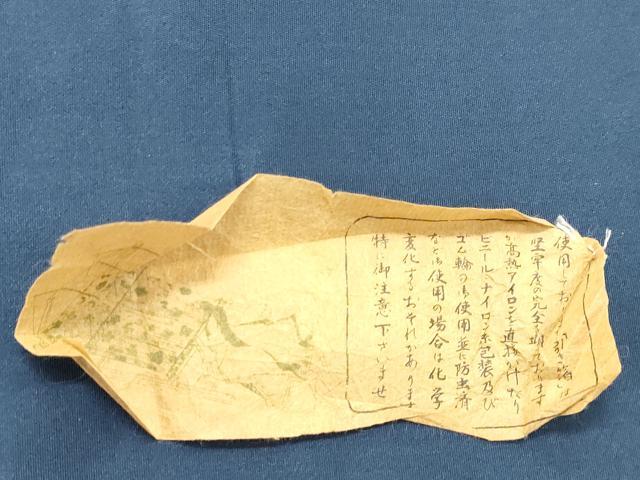 使用してお 引き箔は
堅牢度の完全を期しております
が高熱アイロンを直接かけたり
ビニールナイロン系包装及び
ゴム輪の御使用並に防虫剤
などの使用の場合は化学
変化するおそれがあります
特に御注意下さいませ